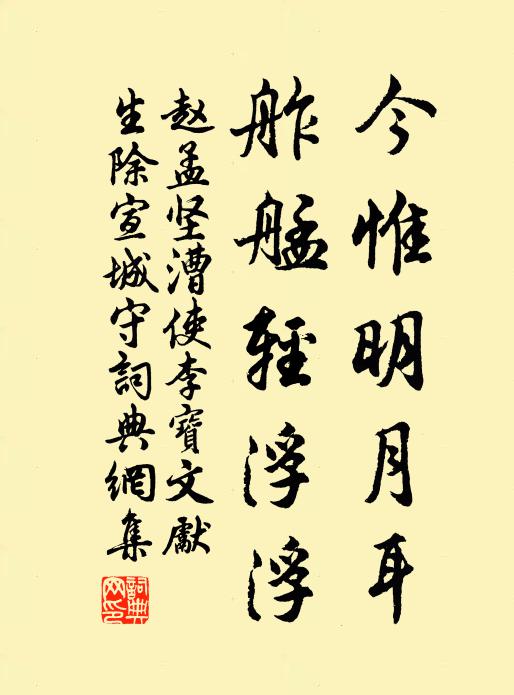 今惟明月耳
舴艋轻浮浮
赵孟坚漕使李寶文獻
生除宣城守詞典網集